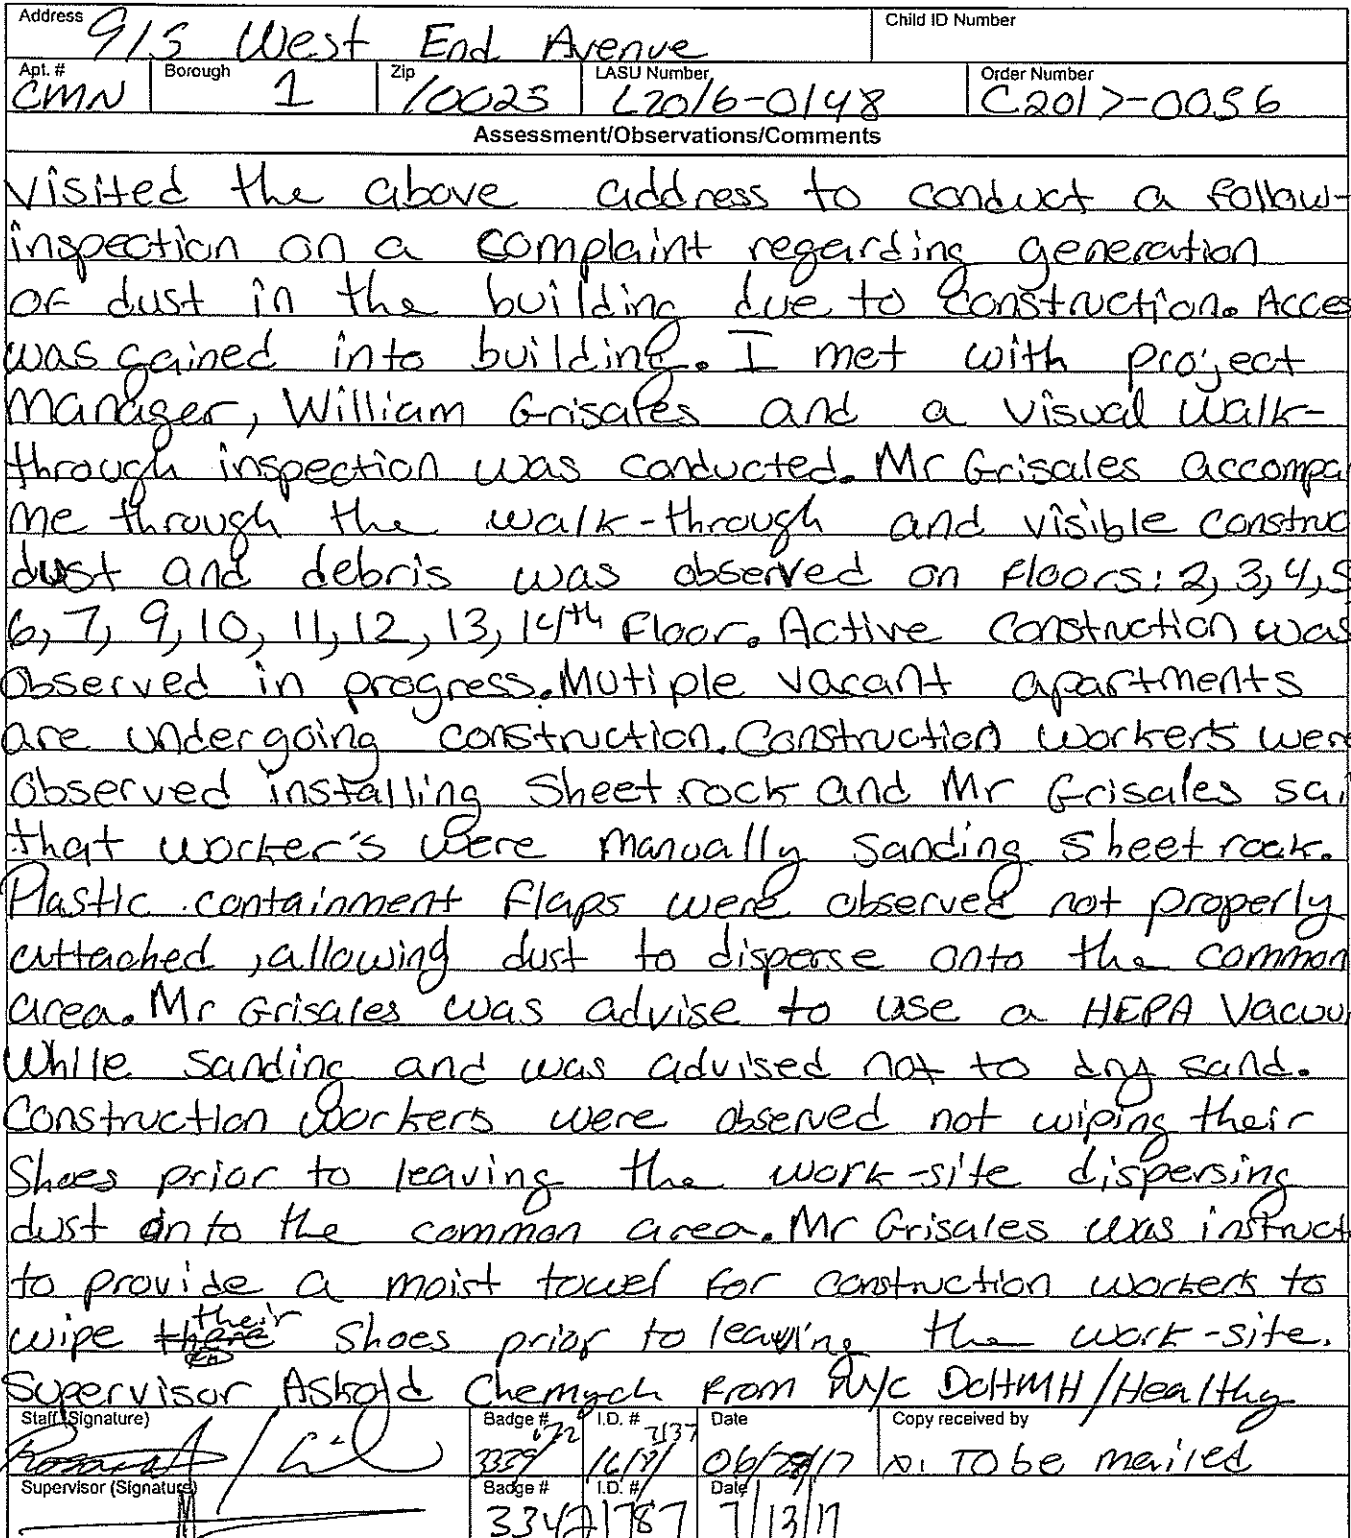 Address 915 West End Avenue Child ID Number
Apt. # CMN Borough 1 Zip 10025 LASU Number L2016-0148 Order Number C2017-0056
Assessment/Observations/Comments
Visited the above address to conduct a follow-
inspection on a complaint regarding generation
of dust in the building due to construction. Acces
was gained into building. I met with project
Manager, William Grisales and a visual walk-
through inspection was conducted. Mr Grisales accompa
me through the walk-through and visible construc
dust and debris was observed on floors: 2, 3, 4, 5
6, 7, 9, 10, 11, 12, 13, 14th Floor. Active construction was
observed in progress. Mutiple vacant apartments
are undergoing construction. Construction workers were
observed installing Sheet rock and Mr Grisales sai
that worker's were manually sanding sheet rock.
Plastic containment flaps were observed not properly
attached, allowing dust to disperse onto the common
area. Mr Grisales was advise to use a HEPA Vacuu
While sanding and was advised not to dry sand.
Construction workers were observed not wiping their
Shoes prior to leaving the work-site dispersing
dust onto the common area. Mr Grisales was instruct
to provide a moist towel for construction workers to
wipe there their shoes prior to leaving the work-site.
Supervisor Askold Chemych from NYC DOHMH/Healthy
Staff (Signature) Badge # I.D. # Date Copy received by
3339 06/28/17 To be mailed
Supervisor (Signature) Badge # I.D. # Date
1787 7/13/17